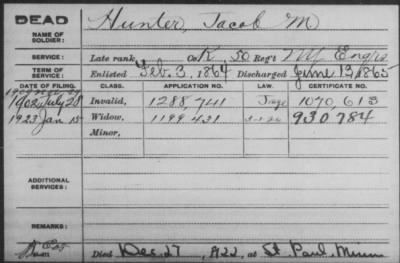 DEAD
Hunter, Jacob M
NAME OF SOLDIER:
SERVICE: Late rank Co K, 50 Reg't NY Engrs
TERM OF SERVICE: Enlisted Feb. 3, 1864 Discharged June 13, 1865
DATE OF FILING. CLASS. APPLICATION NO. LAW. CERTIFICATE NO.
1902 July 28 Invalid, 1288,741 1070,613
1923 Jan 15 Widow, 1199,431 930784
Minor,
ADDITIONAL SERVICES:
REMARKS:
Died Dec. 27, 1922, at St. Paul, Minn